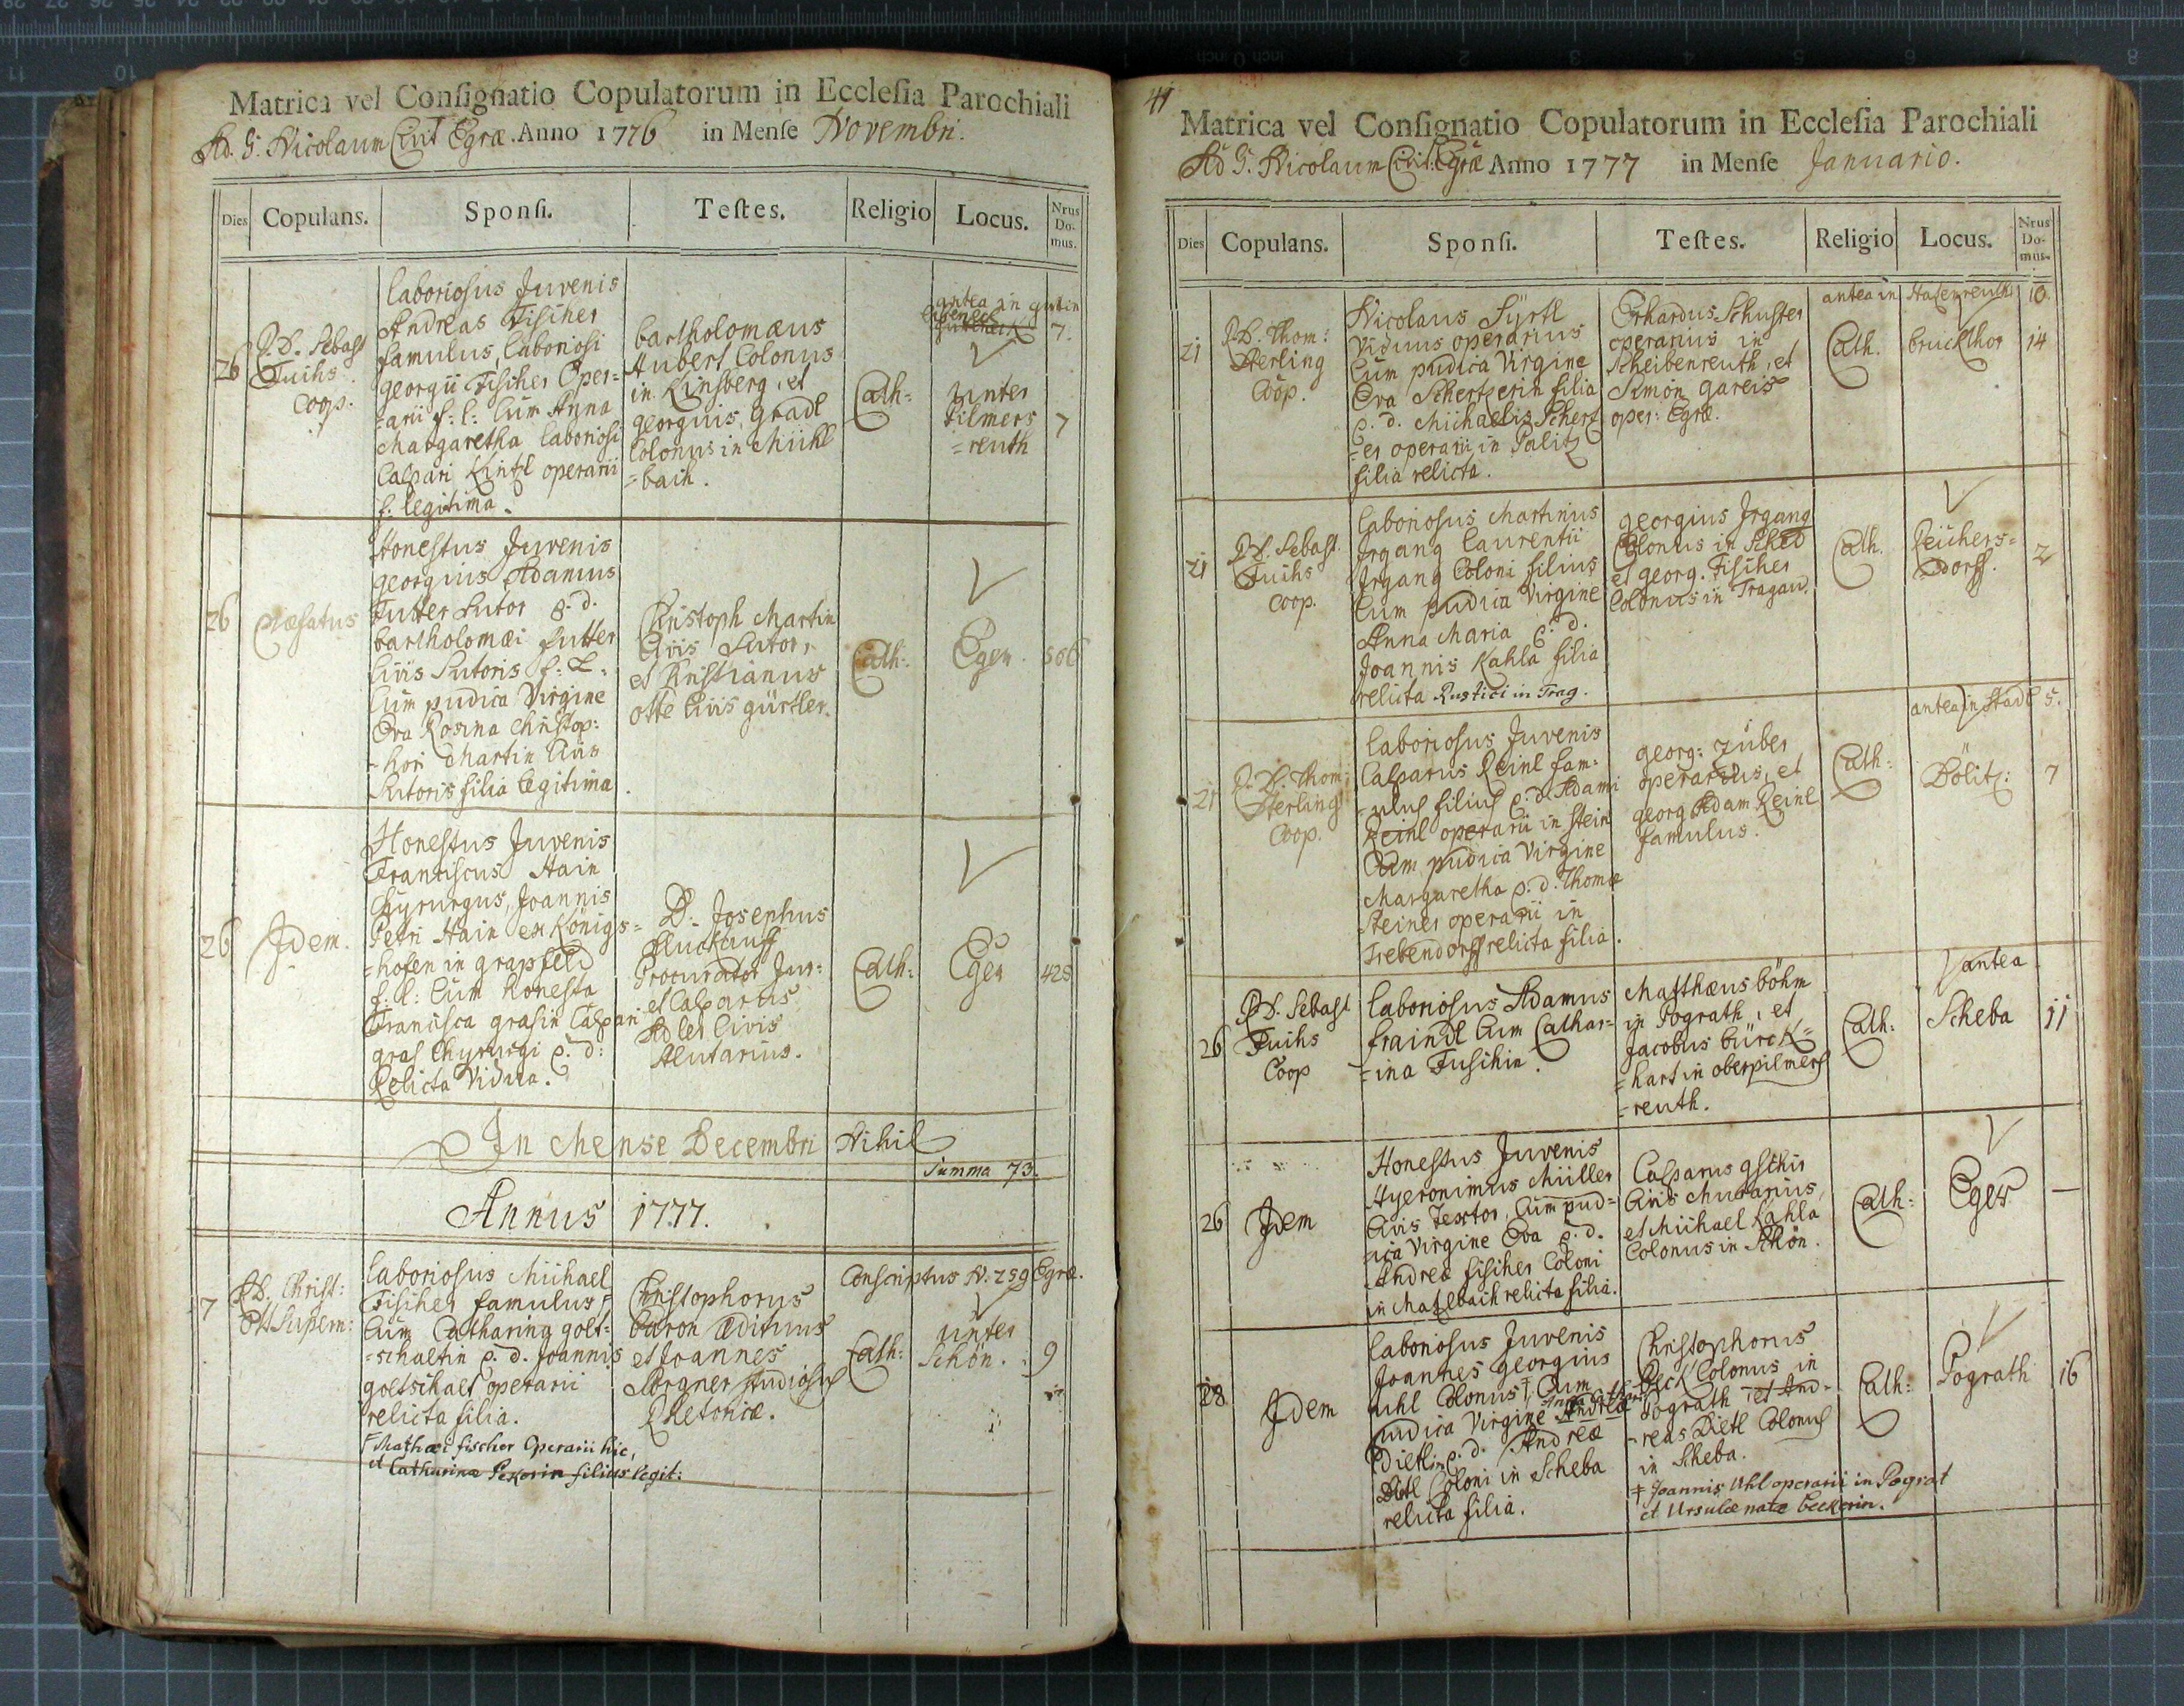 Matrica vel Consignatio Copulatorum in Ecclesia Parochiali
Ad. S. Nicolaum Civit Egræ. Anno 1776 in Mense Novembri.
Dies Copulans. Sponsi. Testes. Religio Locus. Nrus Domus.
26
P.D. Sebast
Fuchs
Coop.
Laboriosus Juvenis
Andreas Fischer
famulus, Laboriosi
georgii Fischer Oper=
=arii f: l: Cum Anna
Margaretha laboriosi
Caspari Kintzl operarii
f: legitima.
bartholomæus
Hubert Colonus
in Kinsberg, et
georgius gradl
Colonus in Mühl
=bach.
Cath:
antea in
7.
unter
Pilmers
=reuth
7
26
Præfatus
Honestus Juvenis
georgius Adamus
Futter Sutor p. d.
bartholomæi futter
Civis Sutoris f: L:
Cum pudica Virgine
Eva Rosina Christop:
=hori Martin Civis
Sutoris filia legitima.
Christoph Martin
Civis Sutor,
et Christianus
otte Civis gürtler.
Cath:
Eger.
506
26
Idem.
Honestus Juvenis
Franciscus Hain
Chyrurgus, Joannis
Petri Hain ex Königs=
=hofen in grapfeld
f: l: Cum honesta
Francisca grafin Caspari
graf Chyrurgi p. d:
Relicta Vidua.
D: Josephus
Kluckauff
Procurator Jur:
et Casparus
Adler Civis
Alutarius.
Cath:
Eger
425
In Mense Decembri Nihil
Summa 73.
Annus 1777.
7
P.D. Christ:
Ott Supern:
Laboriosus Michael
Fischer famulus,
Cum Catharina golt=
=schaltin p. d. Joannis
goltschalt operarii
relicta filia.
Mathæi fischer Operarii hic,
et Catharinæ Pekorin filius legit:
Christophorus
buron Ædituus
et Joannes
Sorgner studiosus
Rhetoricæ.
Conscriptus N. 259 Egræ.
Cath:
unter
Schön.
9
41
Matrica vel Consignatio Copulatorum in Ecclesia Parochiali
Ad S. Nicolaum Civit: Egræ Anno 1777 in Mense Januario.
Dies Copulans. Sponsi. Testes. Religio Locus. Nrus Domus.
21
P.D. Thom:
Sterling
Coop.
Nicolaus Syrtl
Viduus operarius
Cum pudica Virgine
Eva Schertzerin filia
p. d. Michaelis Schertz
=er operarii in Palitz
filia relicta.
Erhardus Schuster
operarius in
Scheibenreuth, et
Simon gareis
oper: Egræ.
antea in Hasenreuth 10.
Cath.
bruckthor
14
21
P.D. Sebast.
Fuchs
Coop.
Laboriosus Martinus
Irgang Laurentii
Irgang Coloni filius
Cum pudica Virgine
Anna Maria p. d.
Joannis Kahla filia
relicta Rustici in Trag.
georgius Irgang
Colonus in Sched
et georg. Fischer
Colonus in Tragau.
Cath.
Reichers=
=dorff.
2
21
P.D. Thom:
Sterling
Coop.
Laboriosus Juvenis
Casparus Reinl fam=
=ulus filius p. d. Adami
Reinl operarii in Stein
Cum pudica Virgine
Margaretha p. d. Thomæ
Steiner operarii in
Trebendorff relicta filia.
georg: Zuber
operarius, et
georg Adam Reinl
famulus.
antea in Stadl 5.
Cath:
Dölitz:
7
26
P.D. Sebast
Fuchs
Coop
Laboriosus Adamus
fraindl Cum Cathar=
=ina Fuschin.
Matthæus böhm
in Pograth, et
Jacobus bürck=
=hart in oberpilmers
=reuth.
antea
Cath:
Scheba
11
26
Idem
Honestus Juvenis
Hyeronimus Müller
Civis Textor, Cum pud=
=ica Virgine Eva p. d.
Andreæ fischer Coloni
in Matzlbach relicta filia.
Casparus gschir
Civis Murarius,
et Michael Kahla
Colonus in Schön.
Cath:
Eger
—
28
Idem
Laboriosus Juvenis
Joannes georgius
uhl Colonus ‡, Cum
pudica Virgine Andrea
Dietlin p. d. Andreæ
Dietl Coloni in Scheba
relicta filia.
Christophorus
Beck Colonus in
Pograth et And=
=reas Dietl Colonus
in Scheba.
‡ Joannis Uhl operarii in Pograt
et Ursulæ natæ Beckerin.
Cath:
Pograth
16